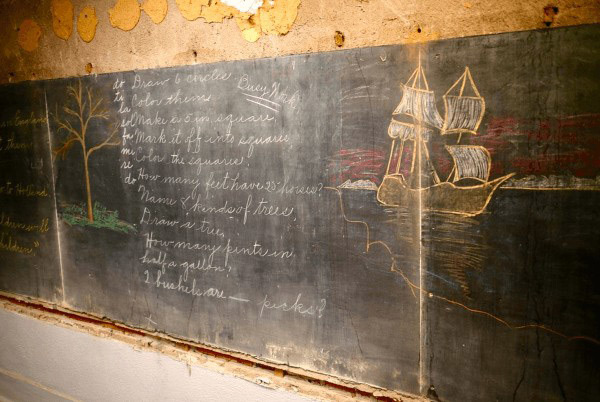 to Holland
do Draw 6 circles Busy Work
ti Color them
la
sol Make a 5 in. square
fa Mark it off into squares
mi Color the squares.
re
do How many feet have 25 horses?
Name 8 kinds of trees.
Draw a tree.
How many pints in
half a gallon?
2 bushels are — picks?